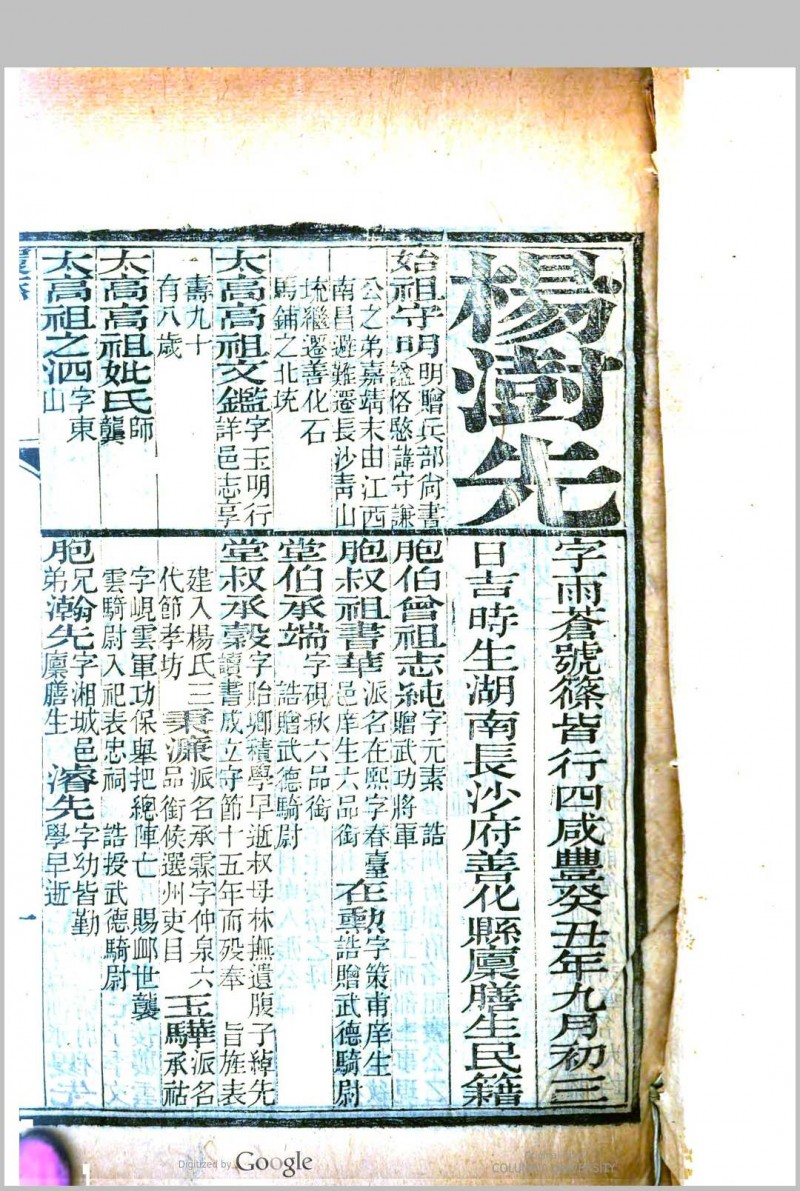 楊澍先
字雨蒼號篠皆行四咸豐癸丑年九月初三
日吉時生湖南長沙府善化縣廩膳生民籍
始祖守明明贈兵部尚書
諡恪愍諱守謙
公之弟嘉靖末由江西
南昌避難遷長沙青山
坑繼遷善化石
馬鋪之北坑
太高高祖文鑑字玉明行
詳邑志享
壽九十
有八歲
太高高祖妣氏師
龔
太高祖之泗字東
山
胞伯曾祖志純字元素 誥
贈武功將軍
胞叔祖書華派名在熙字春臺
邑庠生六品銜
在勳字策甫庠生
誥贈武德騎尉
堂伯承端字硯秋六品銜
誥贈武德騎尉
堂叔承穀字貽鄉積學早逝叔母林撫遺腹子綽先
讀書成立守節十五年而歿奉 旨旌表
建入楊氏三
代節孝坊
秉濂派名承霖字仲泉六
品銜候選州吏目
玉華派名
承祜
字峴雲軍功保舉把總陣亡 賜卹世襲
雲騎尉入祀表忠祠 誥授武德騎尉
胞兄
弟瀚先字湘城邑
廩膳生
濬先字幼皆勤
學早逝
一
Digitized by Google
COLUMBIA UNIVERSITY